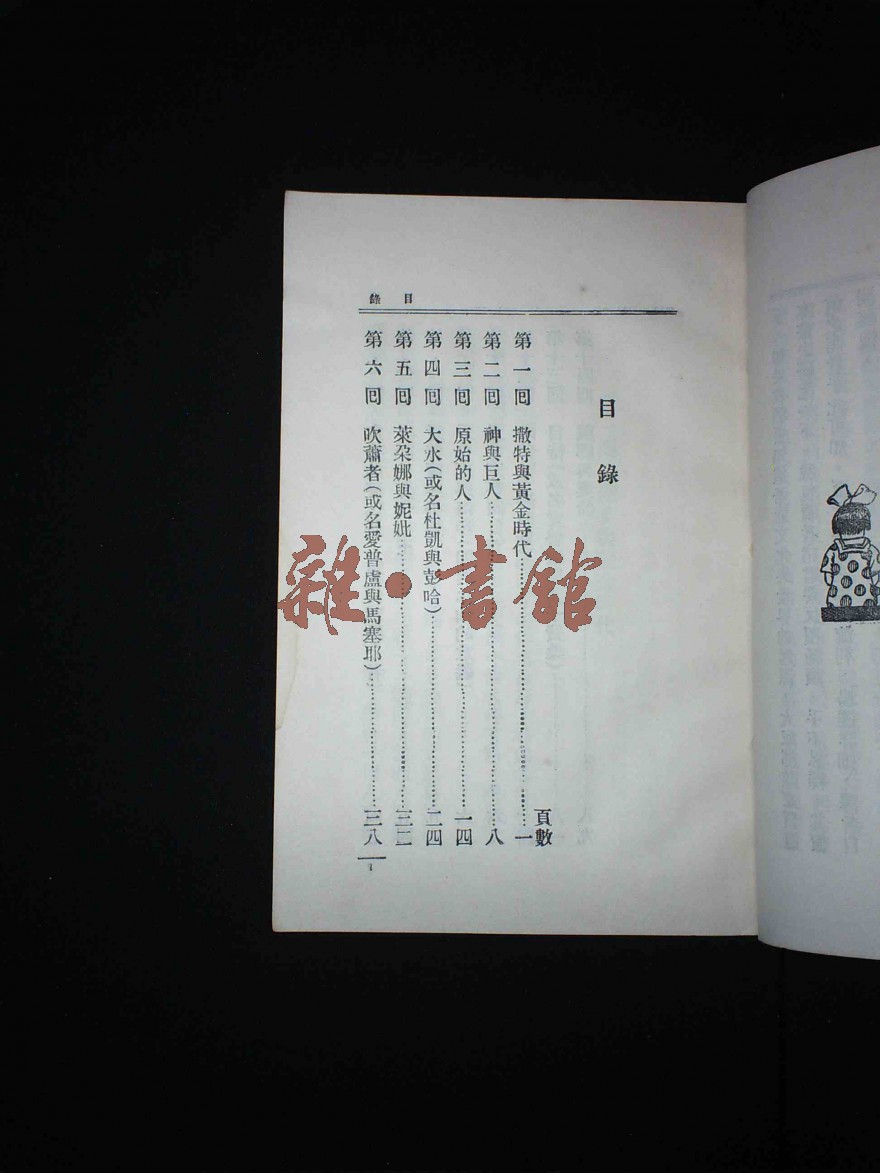 目錄
目錄
頁數
第一囘 撒特與黃金時代……一
第二囘 神與巨人……八
第三囘 原始的人……一四
第四囘 大水(或名杜凱與彭哈)……二四
第五囘 萊朶娜與妮妣……三二
第六囘 吹蕭者(或名愛普盧與馬塞耶)……三八
1
雜·書館